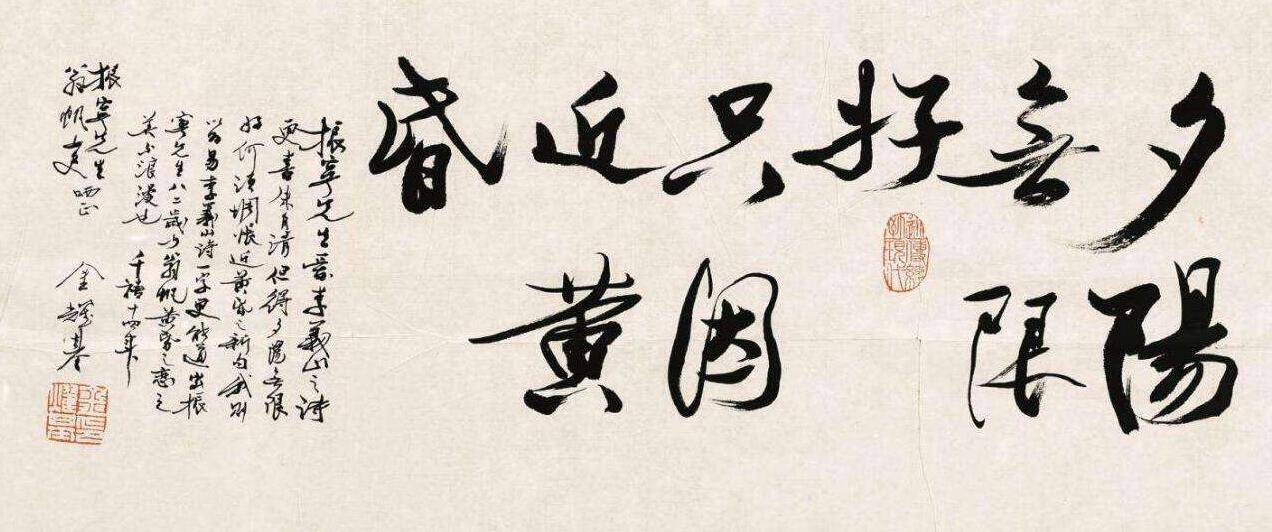 夕陽
無限
好
只因
近黃
昏
振寧先生愛李義山之詩
更喜朱自清但得夕陽無限
好何須惆悵近黃昏之新句我則
以為易李義山詩一字更能道出振
寧先生八二歲與翁帆黃昏之戀之
美與浪漫也 千禧十四年
振寧先生
翁帆女史 哂正
金耀基